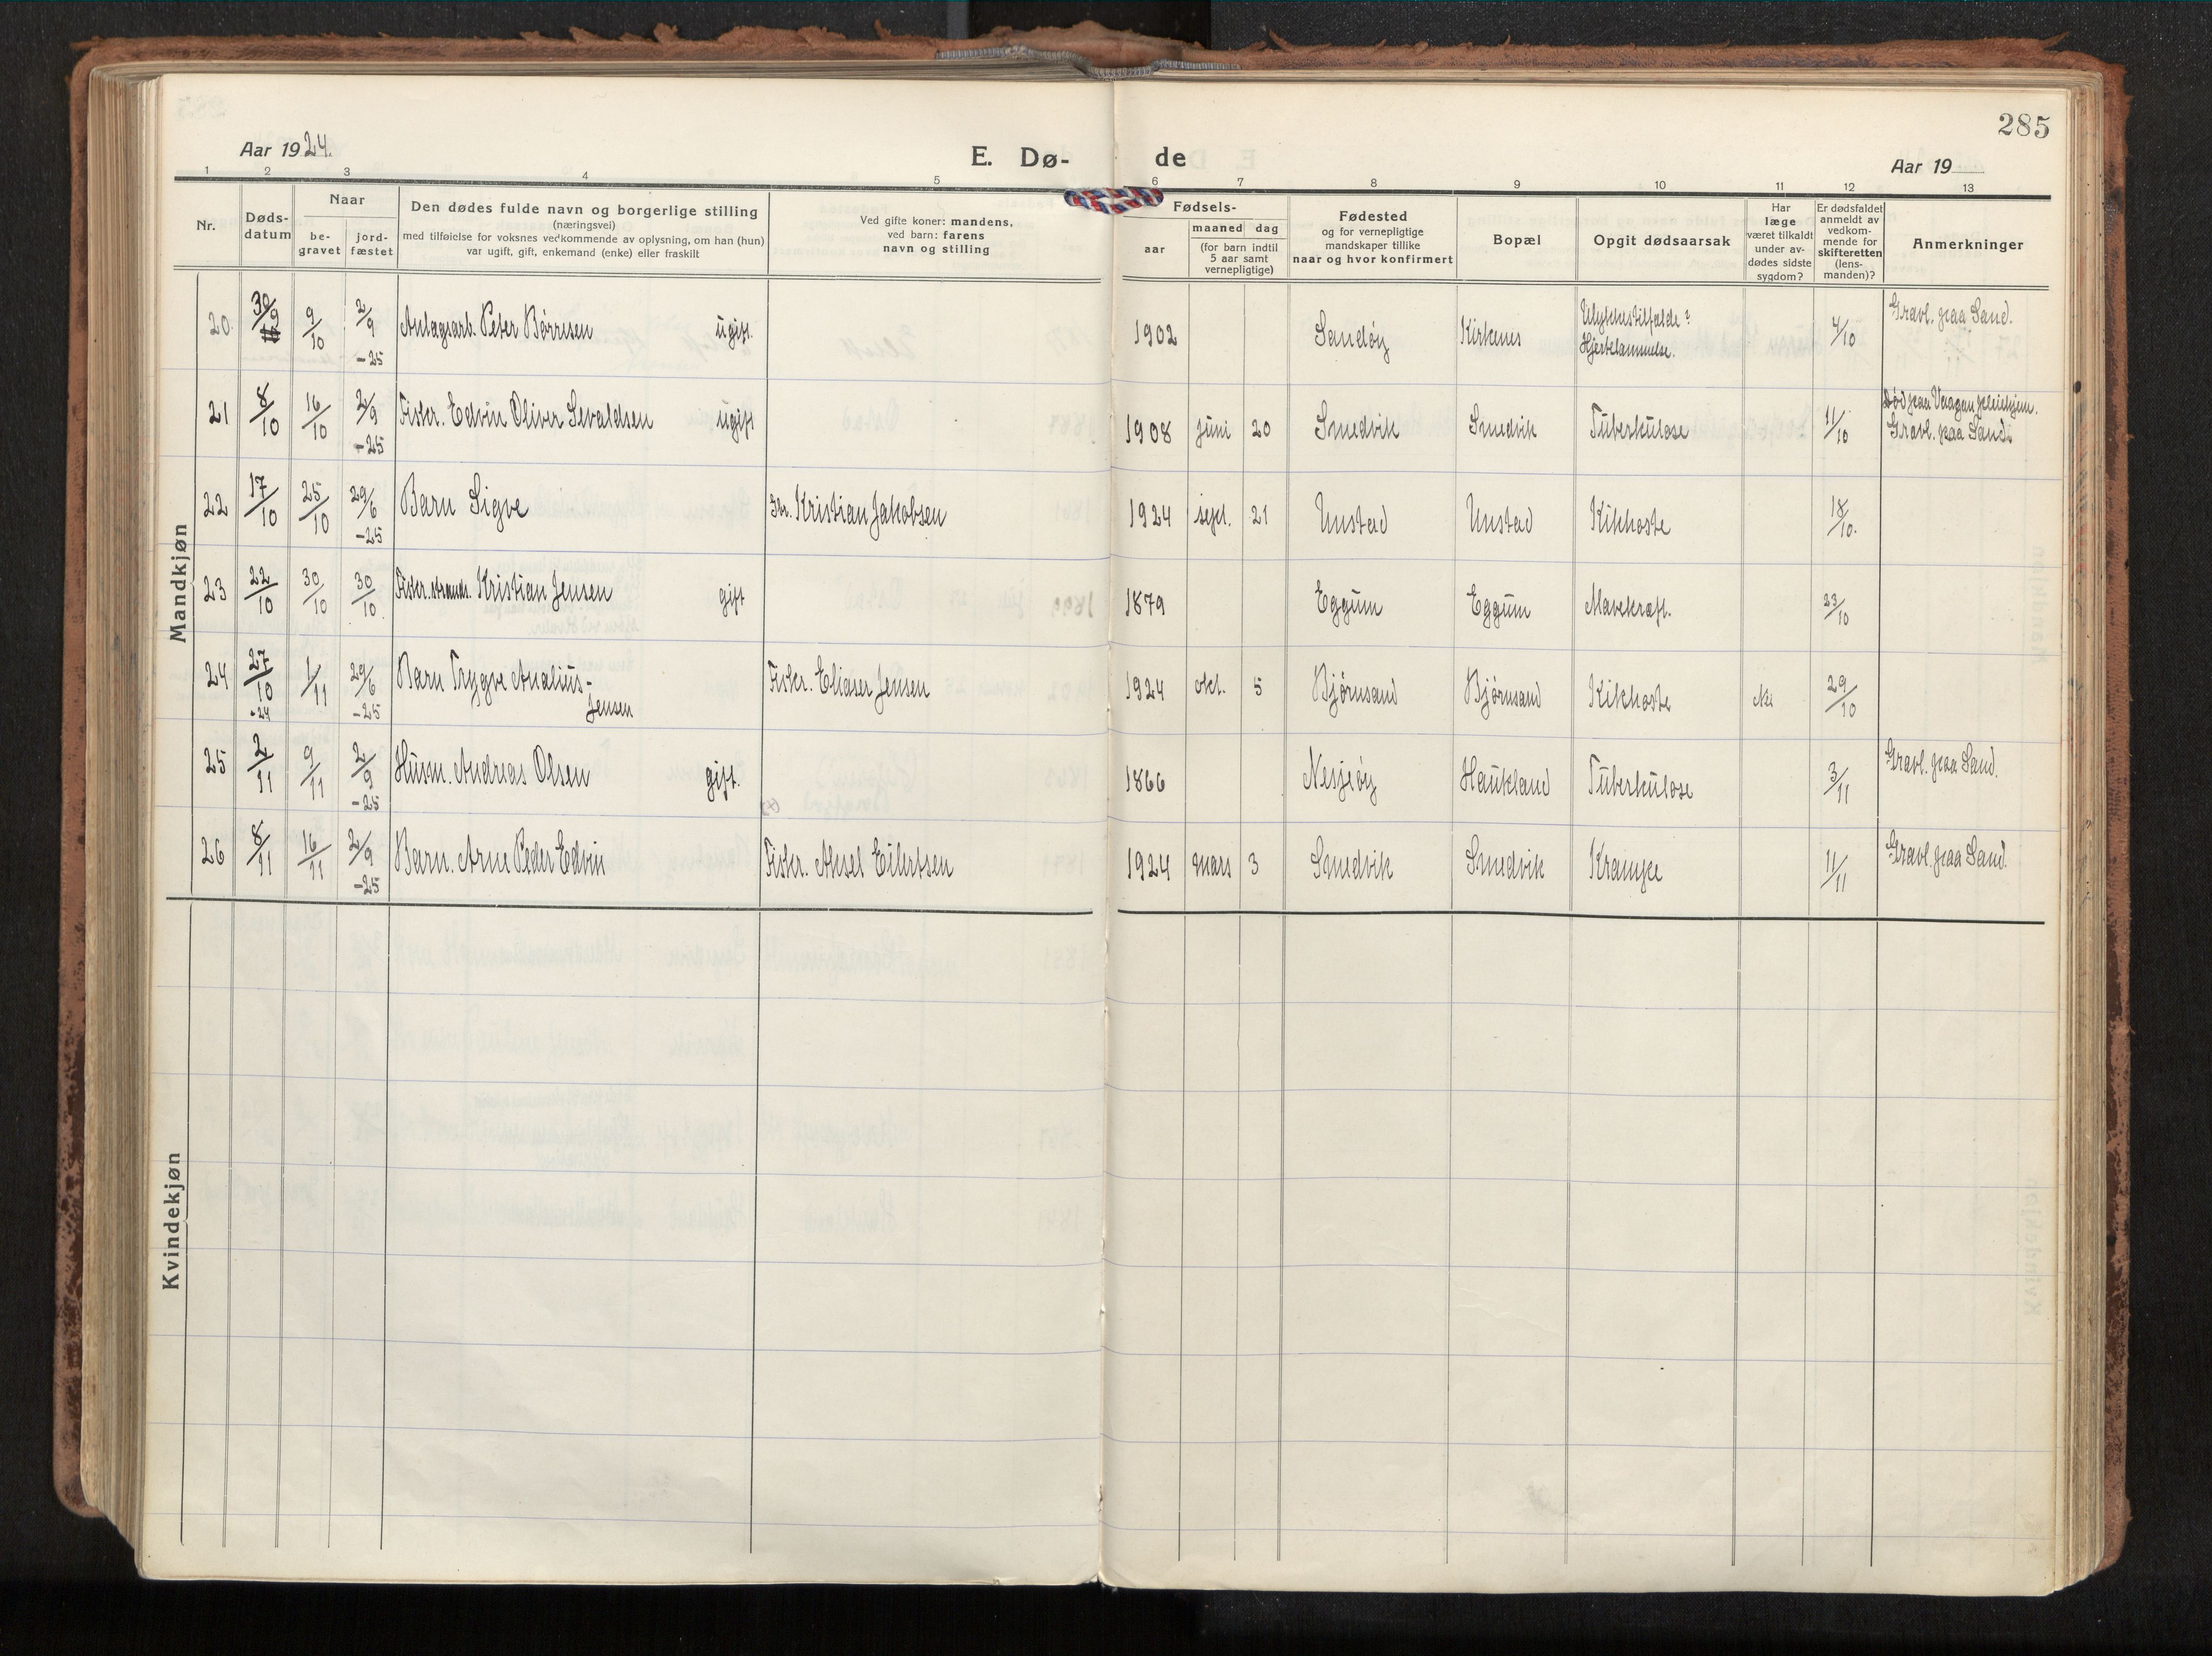 285
Aar 1924.
E. Dø- de
Aar 19
1 2 3 4 5 6 7 8 9 10 11 12 13
Nr.
Døds-
datum
Naar
be-
gravet
jord-
fæstet
Den dødes fulde navn og borgerlige stilling
(næringsvei)
med tilføielse for voksnes vedkommende av oplysning, om han (hun)
var ugift, gift, enkemand (enke) eller fraskilt
Ved gifte koner: mandens,
ved barn: farens
navn og stilling
Fødsels-
aar
maaned dag
(for barn indtil
5 aar samt
vernepligtige)
Fødested
og for vernepligtige
mandskaper tillike
naar og hvor konfirmert
Bopæl
Opgit dødsaarsak
Har
læge
været tilkaldt
under av-
dødes sidste
sygdom?
Er dødsfaldet
anmeldt av
vedkom-
mende for
skifteretten
(lens-
manden)?
Anmerkninger
Mandkjøn
20. 30/9 9/10 2/9 -25 Anlagsarb. Peter Børresen ugift. 1902 Sandøy Kirkenes Ulykkestilfælde? Hjertelammelse. 4/10 Gravl. paa Sand.
21 8/10 16/10 2/9 -25 Fisker. Edvin Oliver Sevaldsen ugift 1908 juni 20 Smedvik Smedvik Tuberkulose 11/10 Død paa Vaagan pleiehjem. Gravl. paa Sand.
22 17/10 25/10 29/6 -25 Barn Sigve Kristian Jakobsen 1924 sept. 21 Unstad Unstad Kikhoste 18/10.
23 22/10 30/10 30/10. Kristian Jensen gift 1879 Eggum Eggum Mavekræft. 23/10
24 27/10 -24 1/11 29/6 -25 Barn Trygve Analius- Jensen Fisker. Eliaser Jensen 1924 okt. 5 Bjørnsand Bjørnsand Kikhoste Nei 29/10
25 2/11 9/11 2/9 -25 Husm. Andreas Olsen gift. 1866 Nesjeøy Haukland Tuberkulose 3/11 Gravl. paa Sand.
26 8/11 16/11 2/9 -25 Barn. Arne Peder Edvin Fisker. Aksel Eilertsen 1924 mars 3 Smedvik Smedvik Krampe 11/11 Gravl. paa Sand.
Kvindekjøn